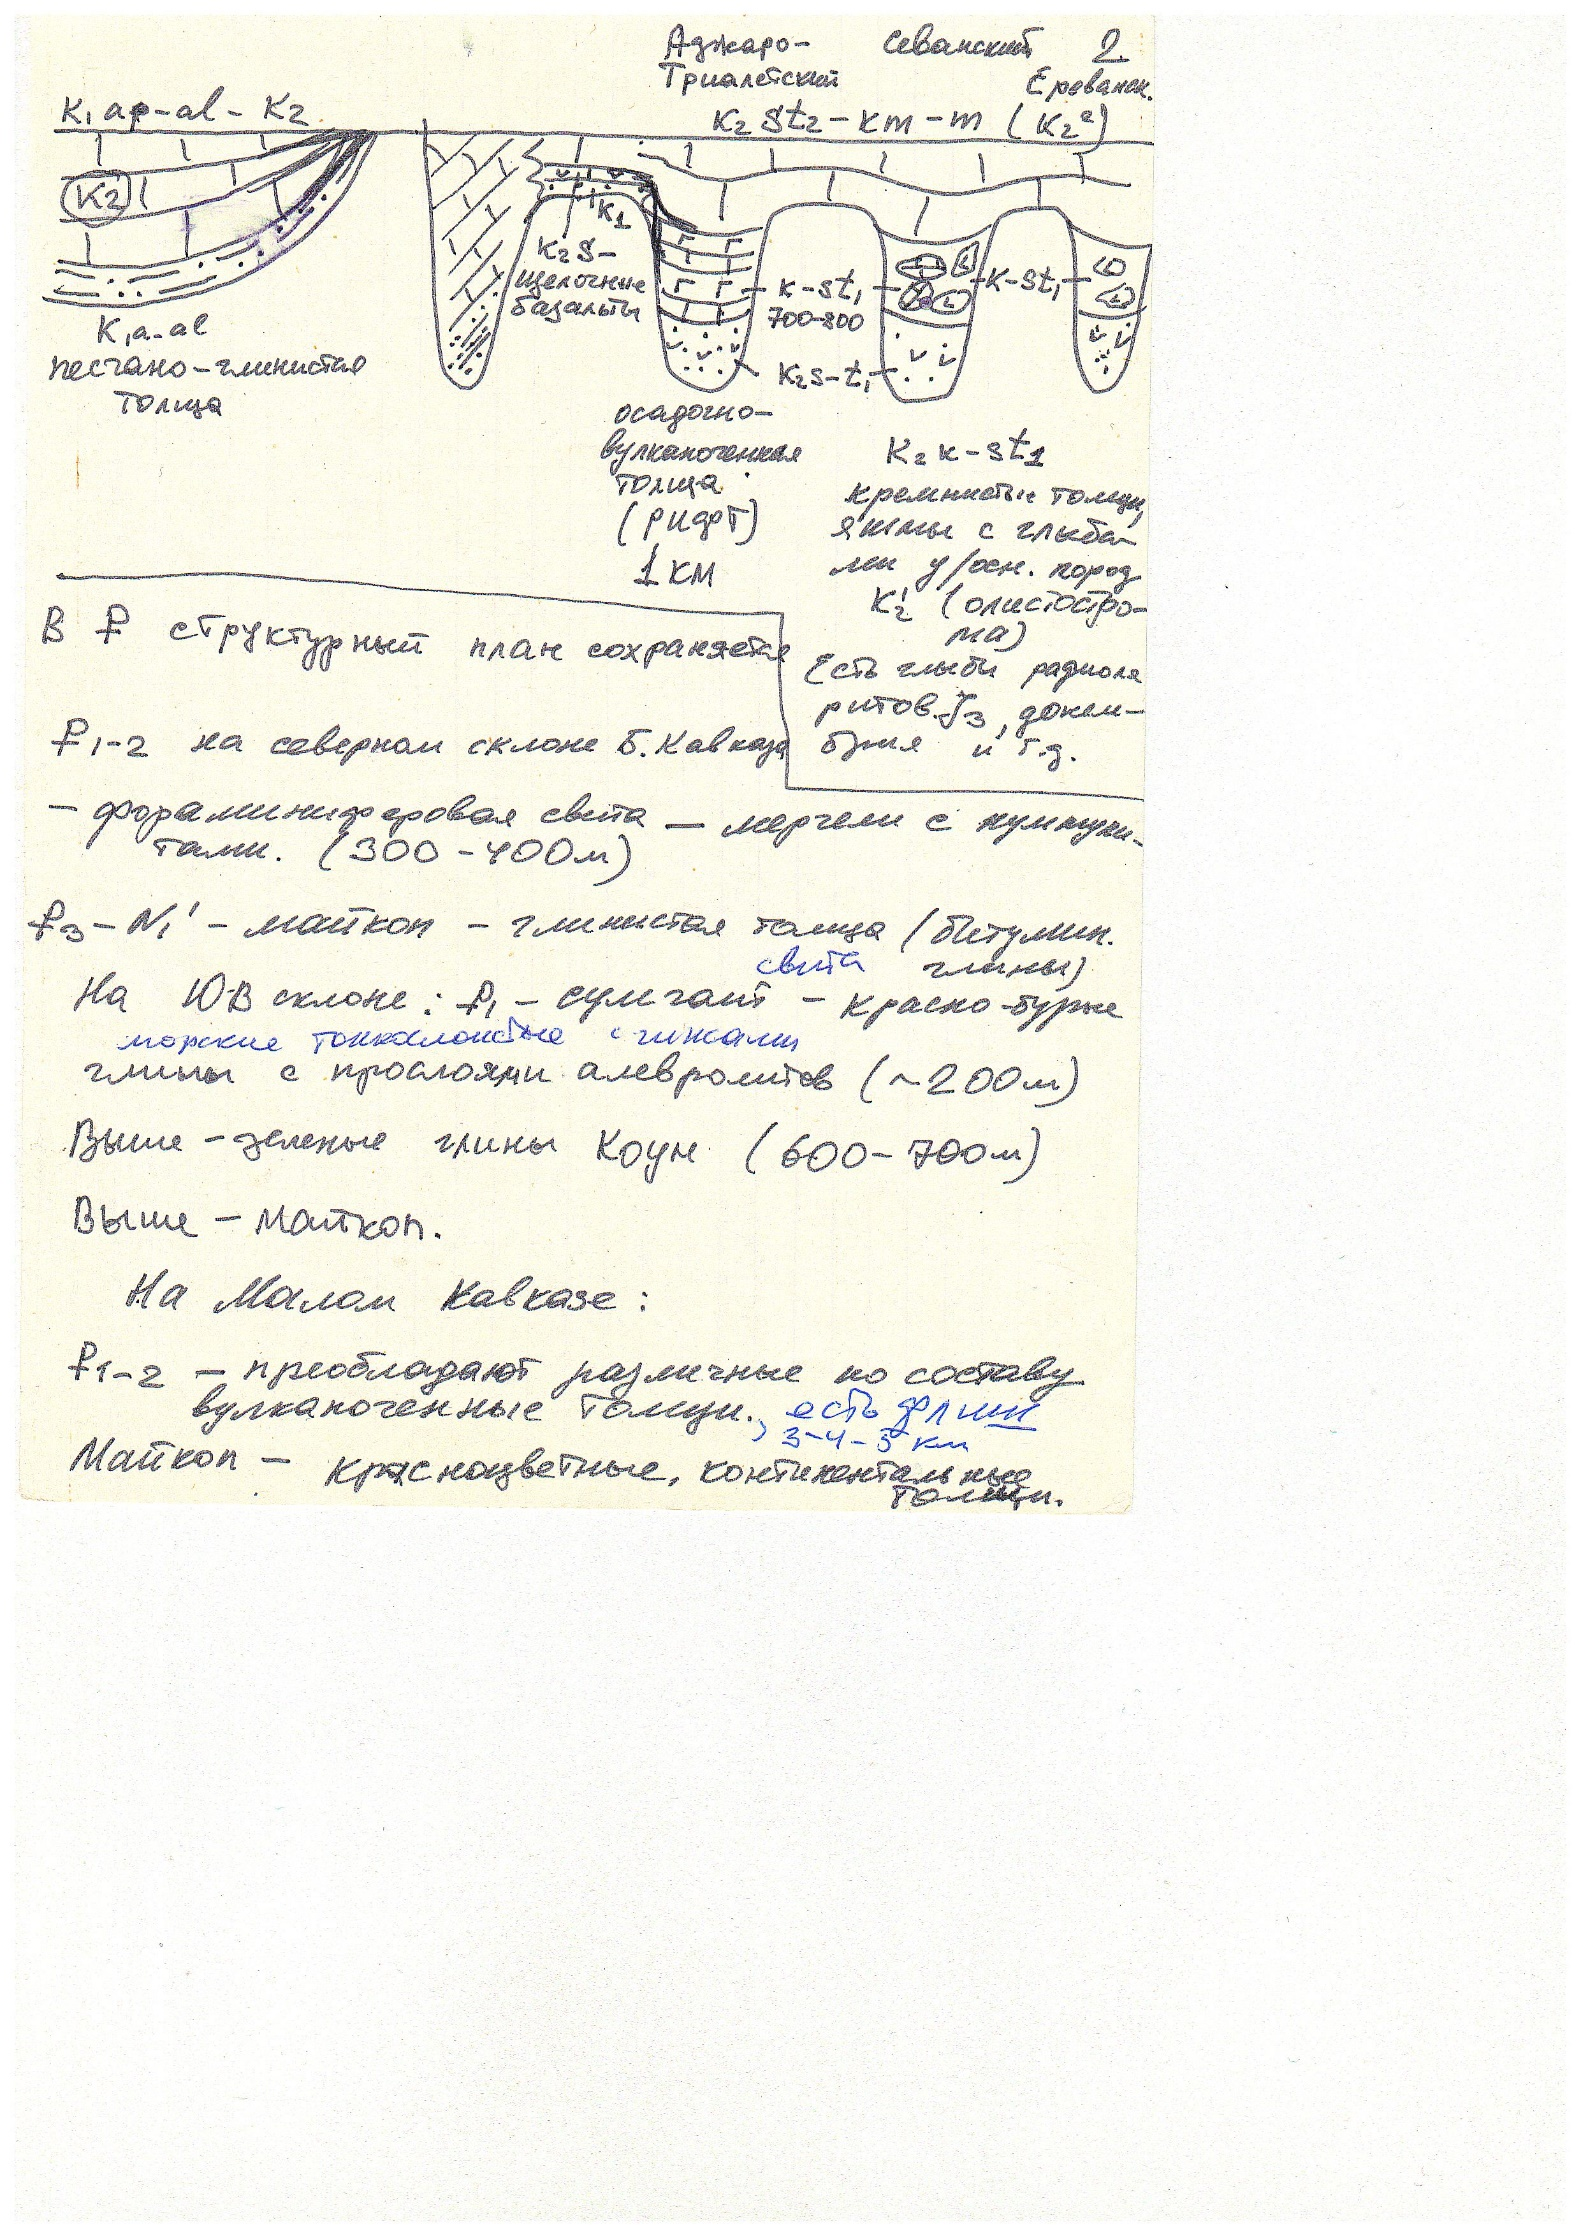 Аджаро- Севанский 2.
Триалетский Ереванск.
K₁ ap-al - K₂
K₂ St₂ - km - m (K₂²)
K₂
K₁
K₂ S -
щелочные
базальты
K-St₁
K-St₁
700-800
K₂ S-t₁
K₁ a-al
песчано-глинистая
толща
осадочно-
вулканогенная
толща
(рифт)
1 км
K₂ к-st₁
кремнистые толщи,
яшмы с глыба-
ми у/осн. пород
K₂¹ (олистостро-
ма)
Есть глыбы радиоля
ритов J₃, докем-
брия и т.д.
В ₽ структурный план сохраняется
₽₁₋₂ на северном склоне Б. Кавказа
- фораминиферовая свита - мергели с нуммули-
тами. (300-400м)
₽₃-N₁¹ - майкоп - глинистая толща (битумин.
свита глины)
На Ю-В склоне: ₽₁ - сумгаит - красно-бурые
морские тонкослоистые с
глины с прослоями алевролитов (~200м)
Выше - зеленые глины Коун (600-700м)
Выше - Майкоп.
На Малом Кавказе:
₽₁₋₂ - преобладают различные по составу
вулканогенные толщи., есть флиш
3-4-5 км
Майкоп - красноцветные, континентальные
толщи.